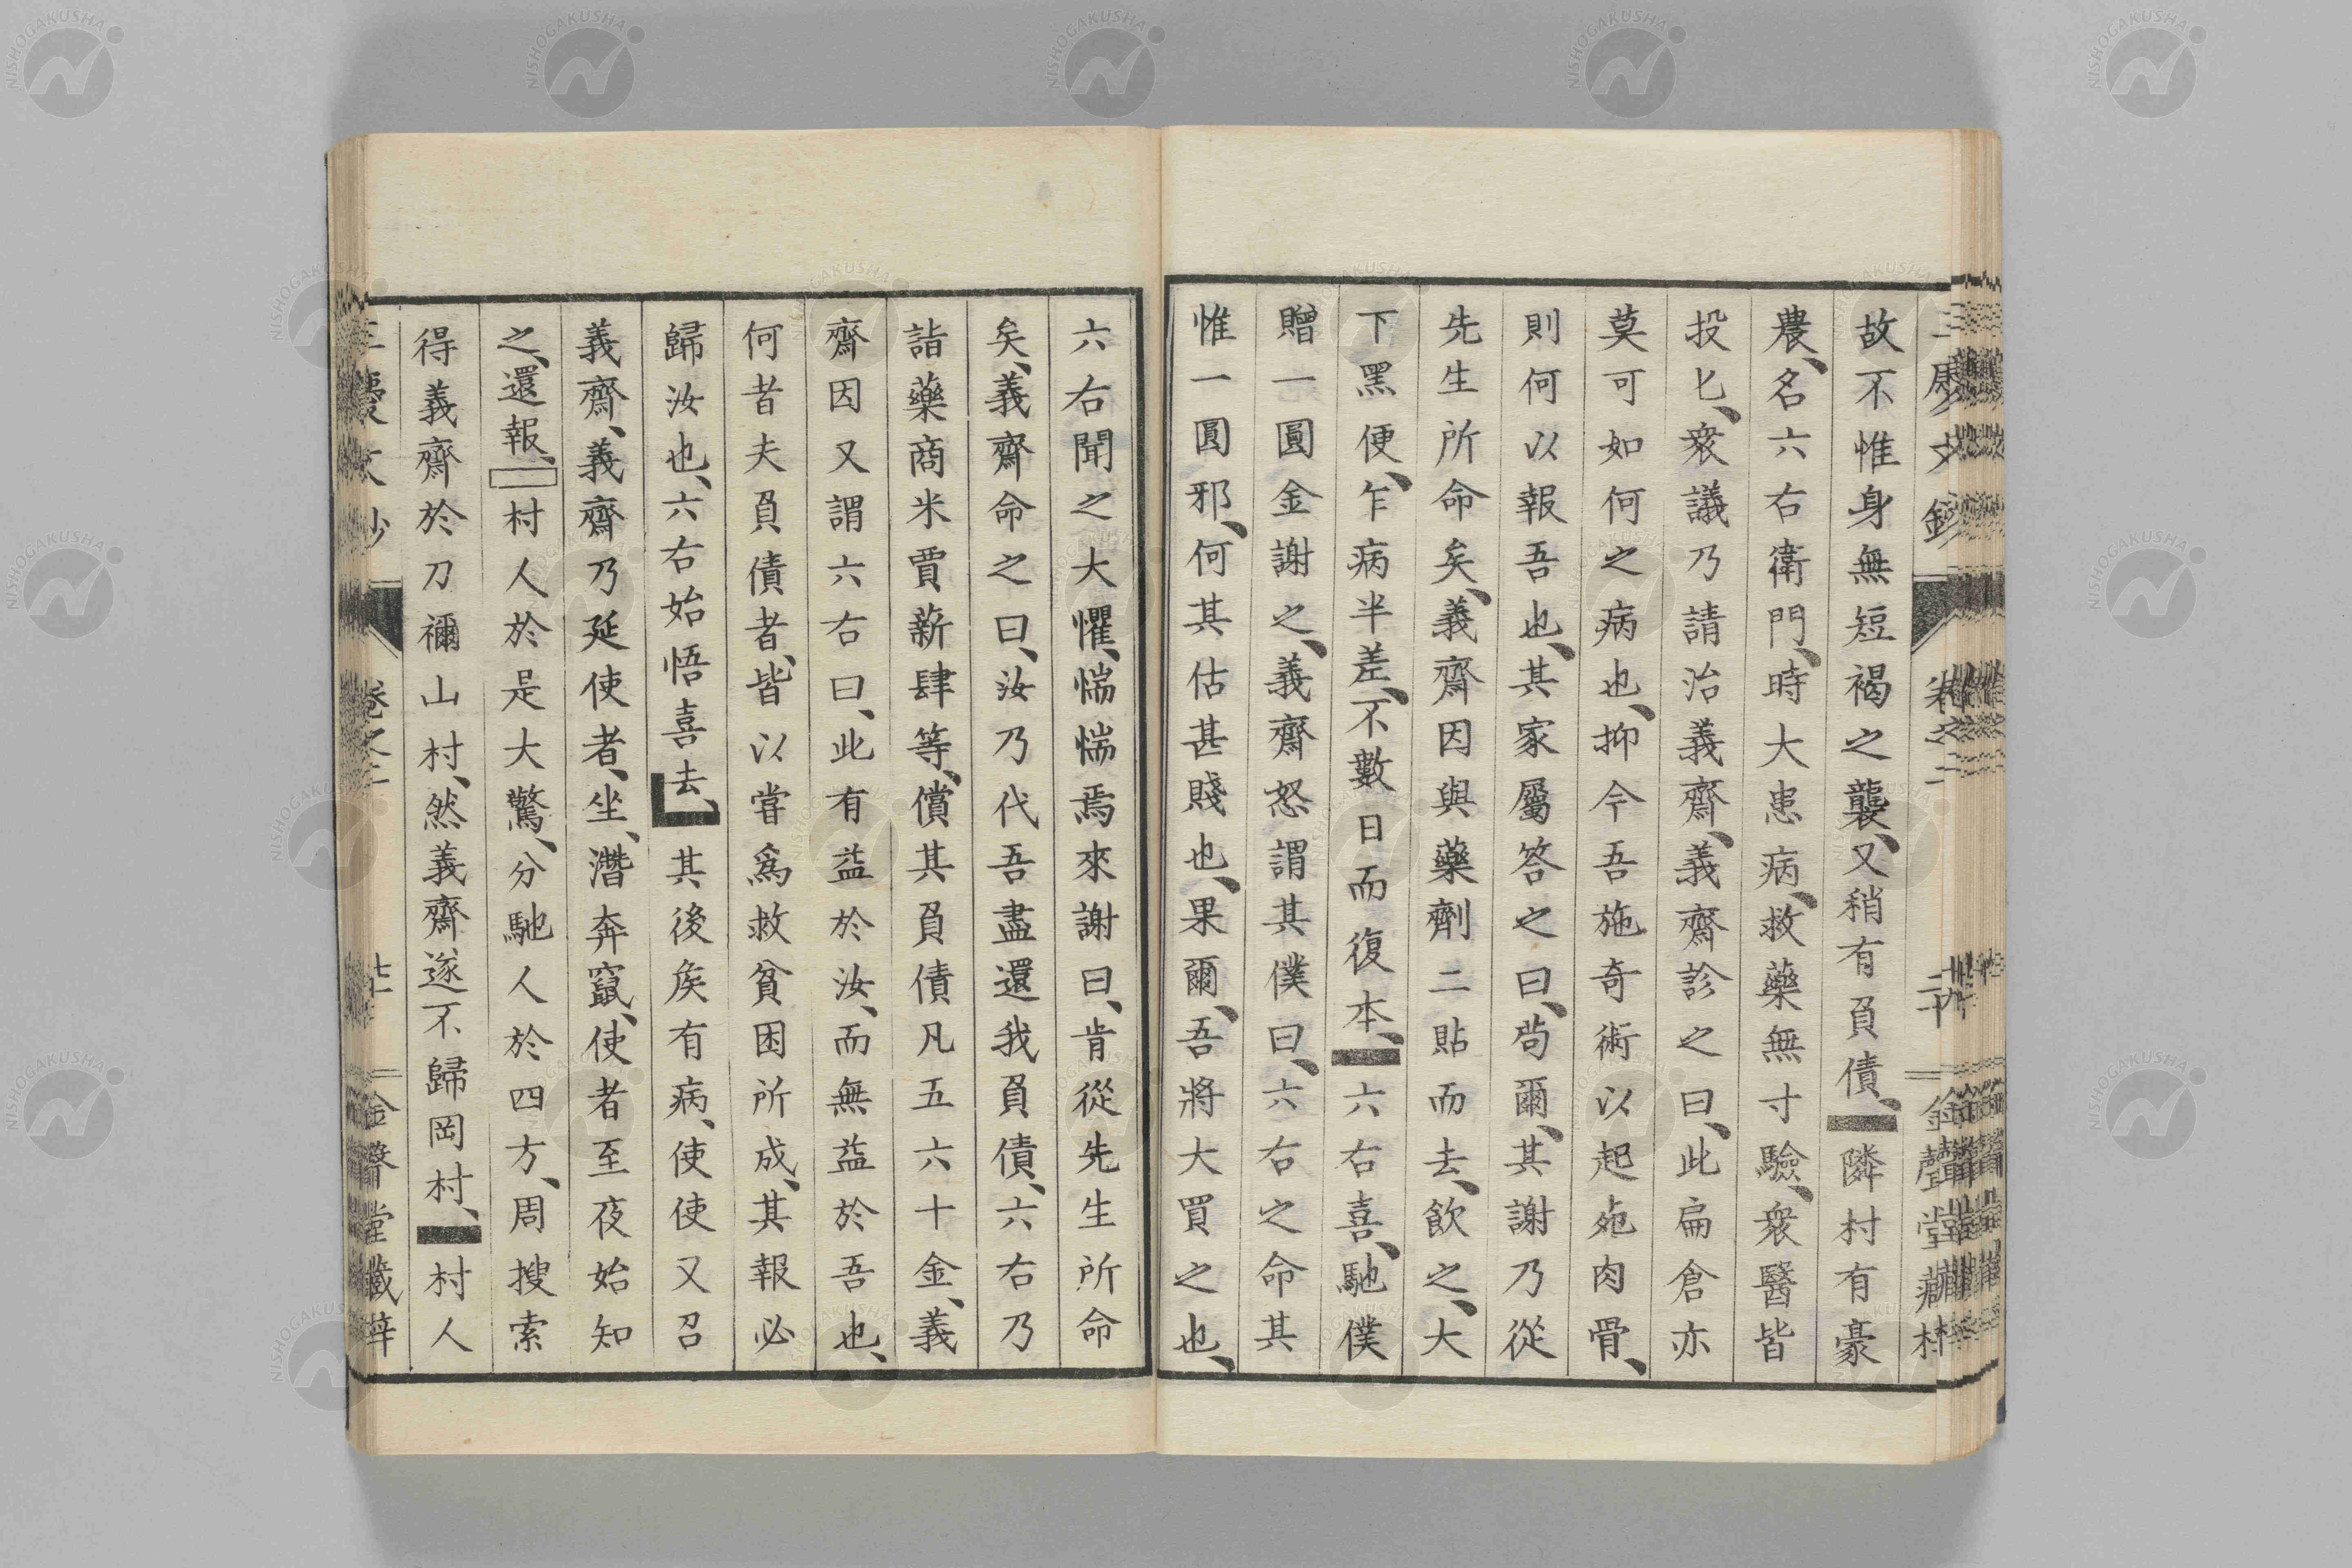 故不惟身無短褐之襲、又稍有負債、隣村有豪
農、名六右衛門、時大患病、救藥無寸驗、衆醫皆
投匕、衆議乃請治義齋、義齋診之曰、此扁倉亦
莫可如何之病也、抑今吾施奇術以起死肉骨、
則何以報吾也、其家屬答之曰、苟爾、其謝乃從
先生所命矣、義齋因與藥劑二貼而去、飲之、大
下黑便、乍病半差、不數日而復本、六右喜、馳僕
贈一圓金謝之、義齋怒謂其僕曰、六右之命其
惟一圓邪、何其估甚賤也、果爾、吾將大買之也、
六右聞之大懼、惴惴焉來謝曰、肯從先生所命
矣、義齋命之曰、汝乃代吾盡還我負債、六右乃
詣藥商米賈薪肆等、償其負債凡五六十金、義
齋因又謂六右曰、此有益於汝、而無益於吾也、
何者夫負債者、皆以甞爲救貧困所成、其報必
歸汝也、六右始悟喜去、其後矦有病、使使又召
義齋、義齋乃延使者、坐、潛奔竄、使者至夜始知
之、還報、村人於是大驚、分馳人於四方、周搜索
得義齋於刀禰山村、然義齋遂不歸岡村、村人
卷之二
金聲堂藏梓
NISHOGAKUSHA